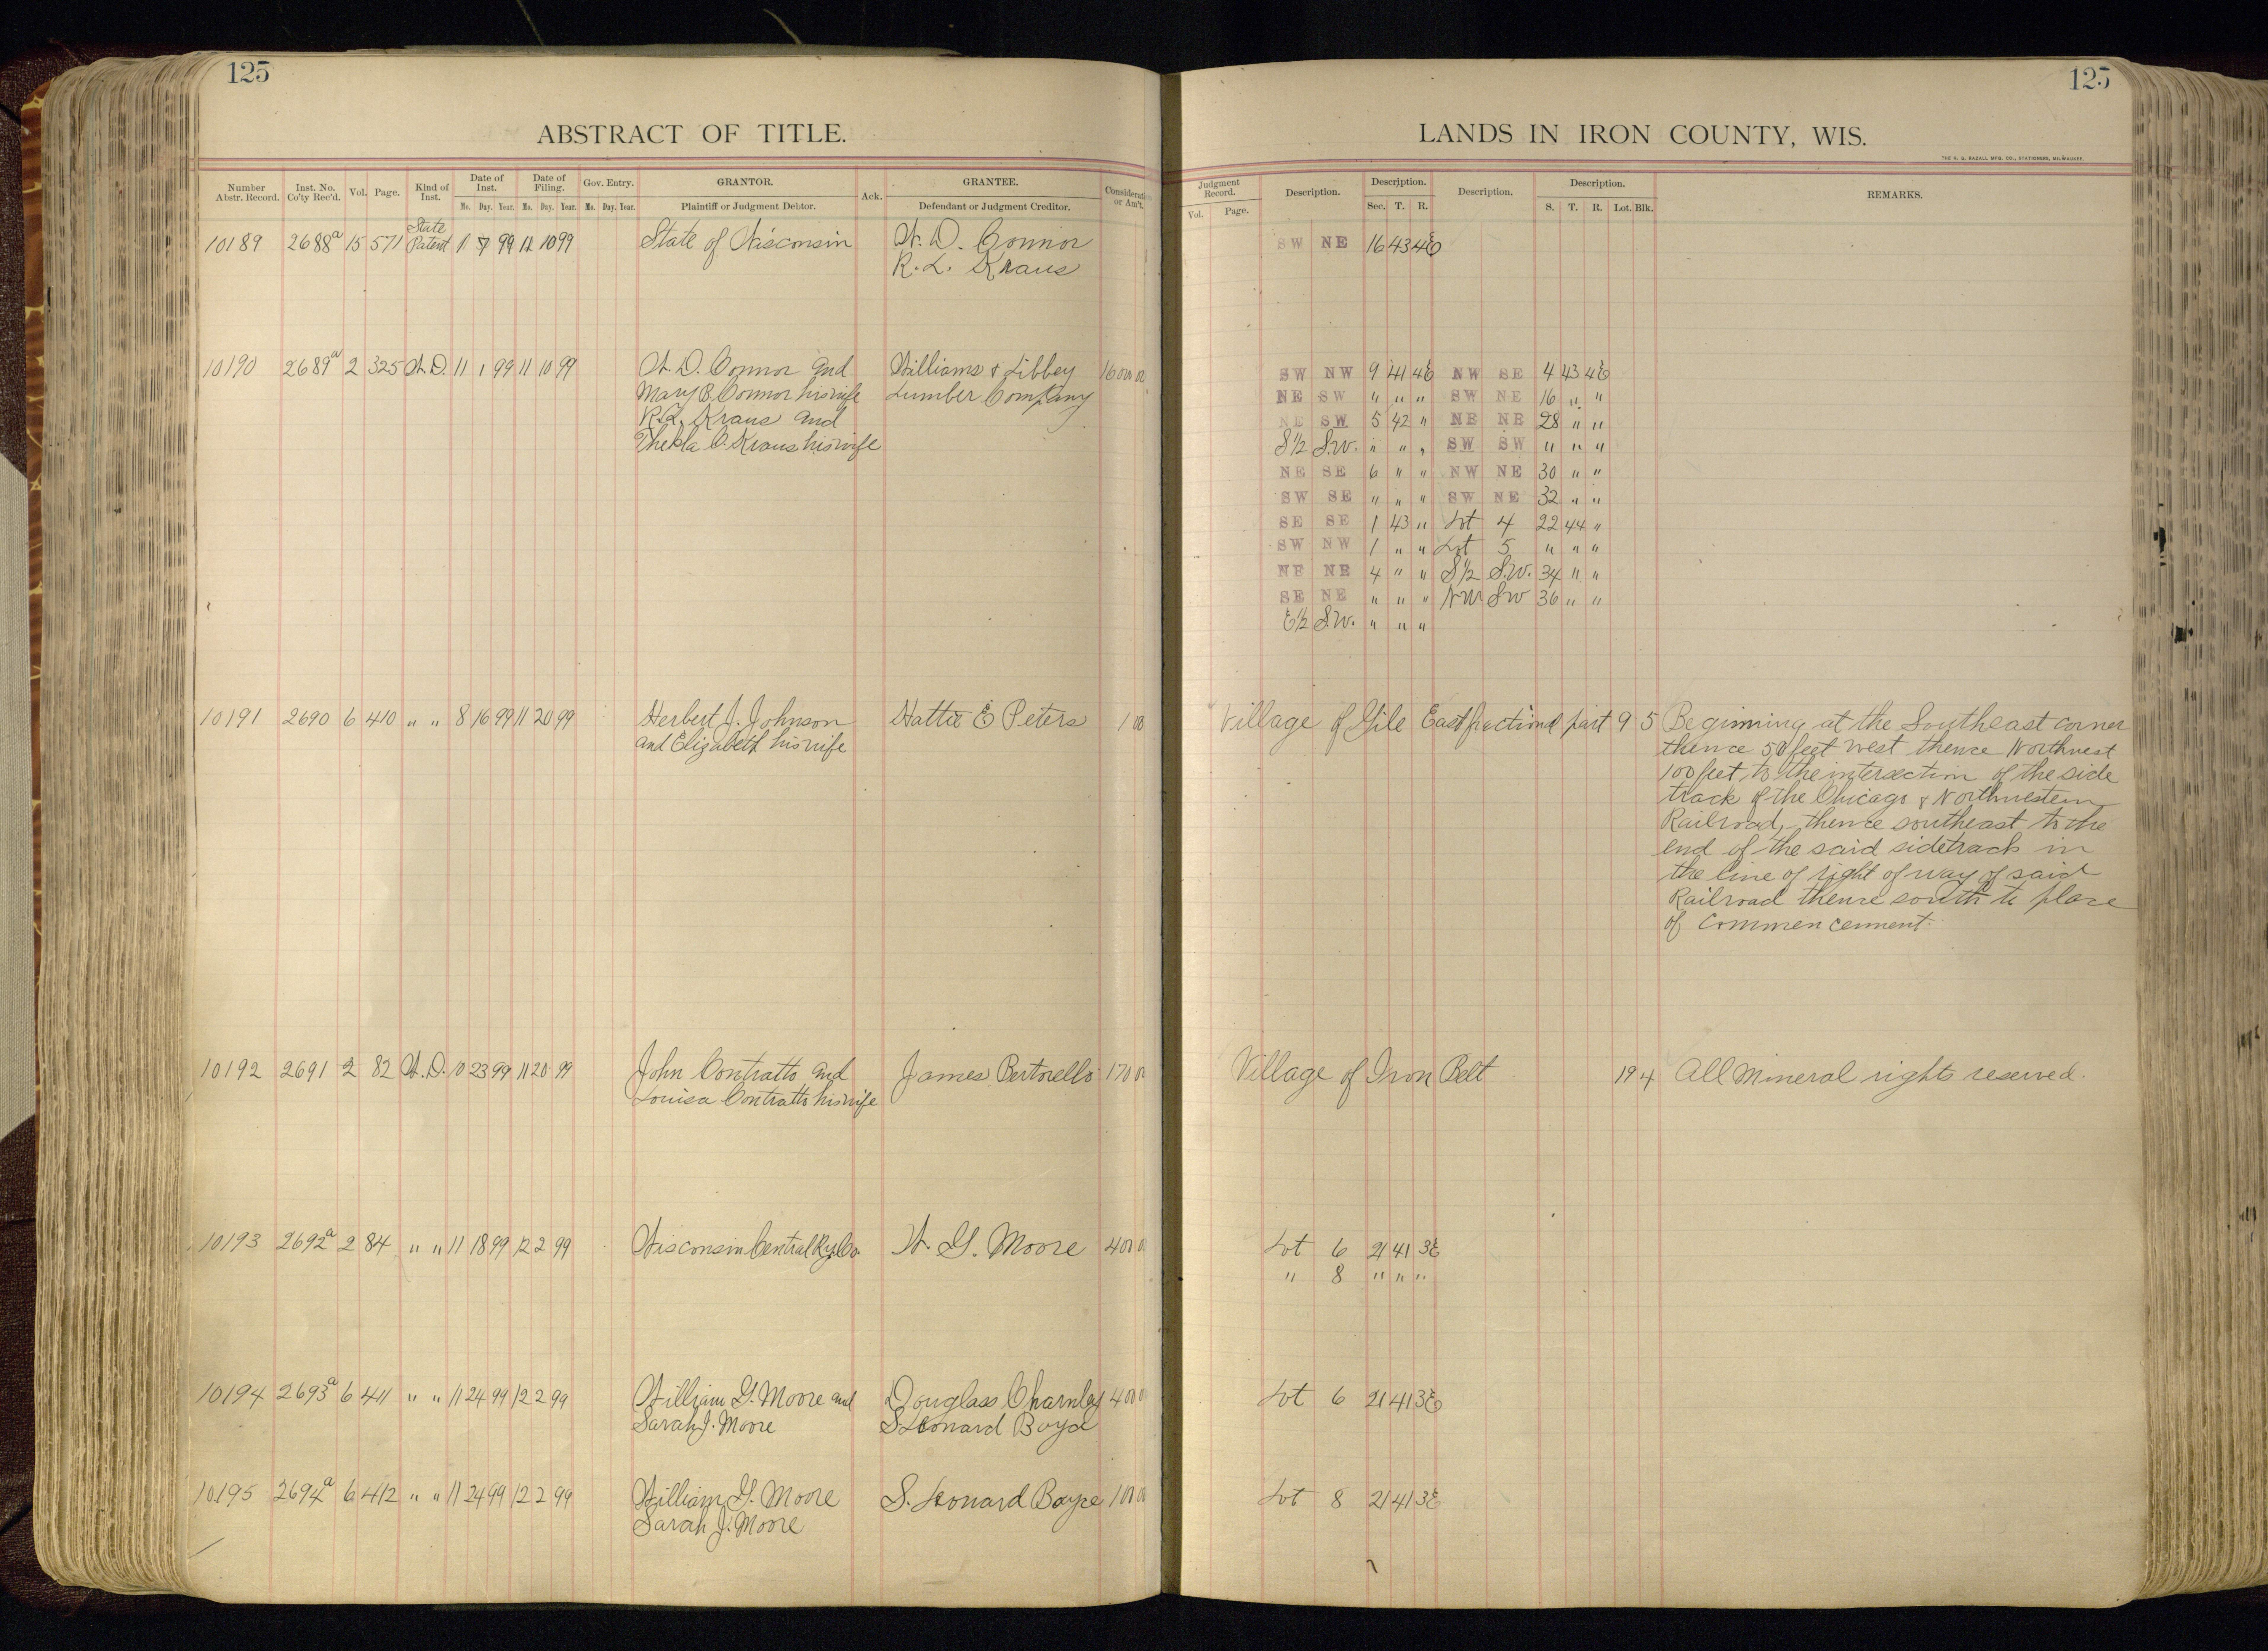 125
125
ABSTRACT OF TITLE.
LANDS IN IRON COUNTY, WIS.
THE H. G. RAZALL MFG. CO., STATIONERS, MILWAUKEE.
Number Abstr. Record. Inst. No. Co'ty Rec'd. Vol. Page. Kind of Inst. Date of Inst. Mo. Day. Year. Date of Filing. Mo. Day. Year. Gov. Entry. Mo. Day. Year. GRANTOR. Plaintiff or Judgment Debtor. Ack. GRANTEE. Defendant or Judgment Creditor. Consideration or Am't.
Judgment Record. Vol. Page. Description. Description. Sec. T. R. Description. Description. S. T. R. Lot. Blk. REMARKS.
State
10189 2688a 15 571 Patent 11 7 99 11 10 99 State of Wisconsin W. D. Connor SW NE 16 43 4E
R. L. Kraus
10190 2689a 2 325 W.D. 11 1 99 11 10 99 W. D. Connor and Williams & Libbey 16000 00 SW NW 9 41 4E NW SE 4 43 4E
Mary B. Connor his wife Lumber Company NE SW " " " SW NE 16 " "
R. L. Kraus and NE SW 5 42 " NE NE 28 " "
Thekla C. Kraus his wife S½ S.W. " " " SW SW " " "
NE SE 6 " " NW NE 30 " "
SW SE " " " SW NE 32 " "
SE SE 1 43 " Lot 4 22 44 "
SW NW 1 " " Lot 5 " " "
NE NE 4 " " S½ S.W. 34 " "
SE NE " " " NW SW 36 " "
E½ S.W. " " "
10191 2690 6 410 " " 8 16 99 11 20 99 Herbert J. Johnson Hattie E Peters 1 00 Village of Gile East fractional part 9 5 Beginning at the Southeast corner
and Elizabeth his wife thence 50 feet west thence Northwest
100 feet, to the intersection of the side
track of the Chicago & Northwestern
Railroad, thence southeast to the
end of the said sidetrack in
the line of right of way of said
Railroad thence south to place
of Commencement.
10192 2691 2 82 W.D. 10 23 99 11 20 99 John Contratto and James Bertorello 170 00 Village of Iron Belt 19 4 All Mineral rights reserved.
Louisa Contratto his wife
10193 2692a 2 84 " " 11 18 99 12 2 99 Wisconsin Central Ry. Co. W. G. Moore 400 0 Lot 6 21 41 3E
" 8 " " "
10194 2693a 6 411 " " 11 24 99 12 2 99 William G. Moore and Douglass Charnley 400 0 Lot 6 21 41 3E
Sarah J. Moore S Leonard Boyce
10195 2694a 6 412 " " 11 24 99 12 2 99 William G. Moore S. Leonard Boyce 100 0 Lot 8 21 41 3E
Sarah J. Moore